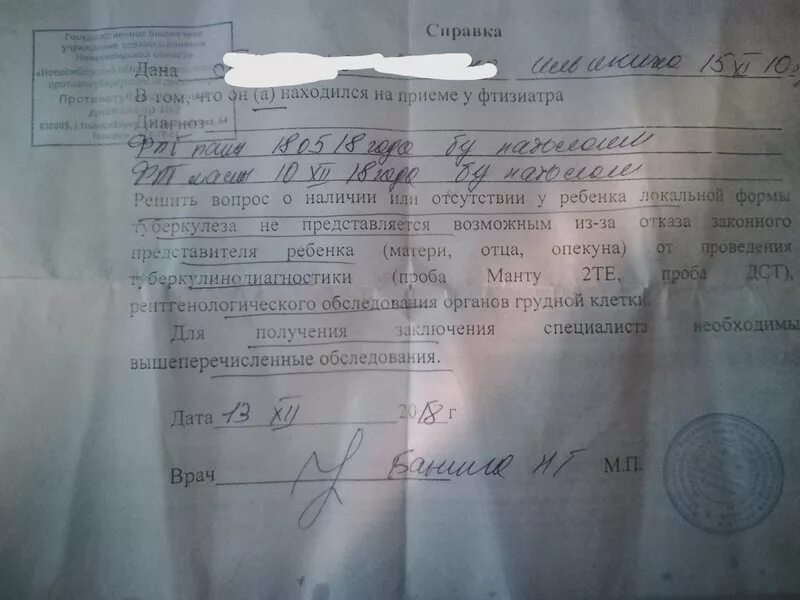 Государственное бюджетное
учреждение здравоохранения
Новосибирской области
Справка
Дана
15 XI 10
В том, что он (а) находился на приеме у фтизиатра
Диагноз
ФЛГ папы 18 05 18 года б/у патологии
10 XII 18 года б/у патолог
Решить вопрос о наличии или отсутствии у ребенка локальной формы
туберкулеза не представляется возможным из-за отказа законного
представителя ребенка (матери, отца, опекуна) от проведения
туберкулинодиагностики (проба Манту 2ТЕ, проба ДСТ),
рентгенологического обследования органов грудной клетки.
Для получения заключения специалиста необходимы
вышеперечисленные обследования.
Дата 13 XII 2018 г
Врач М.П.